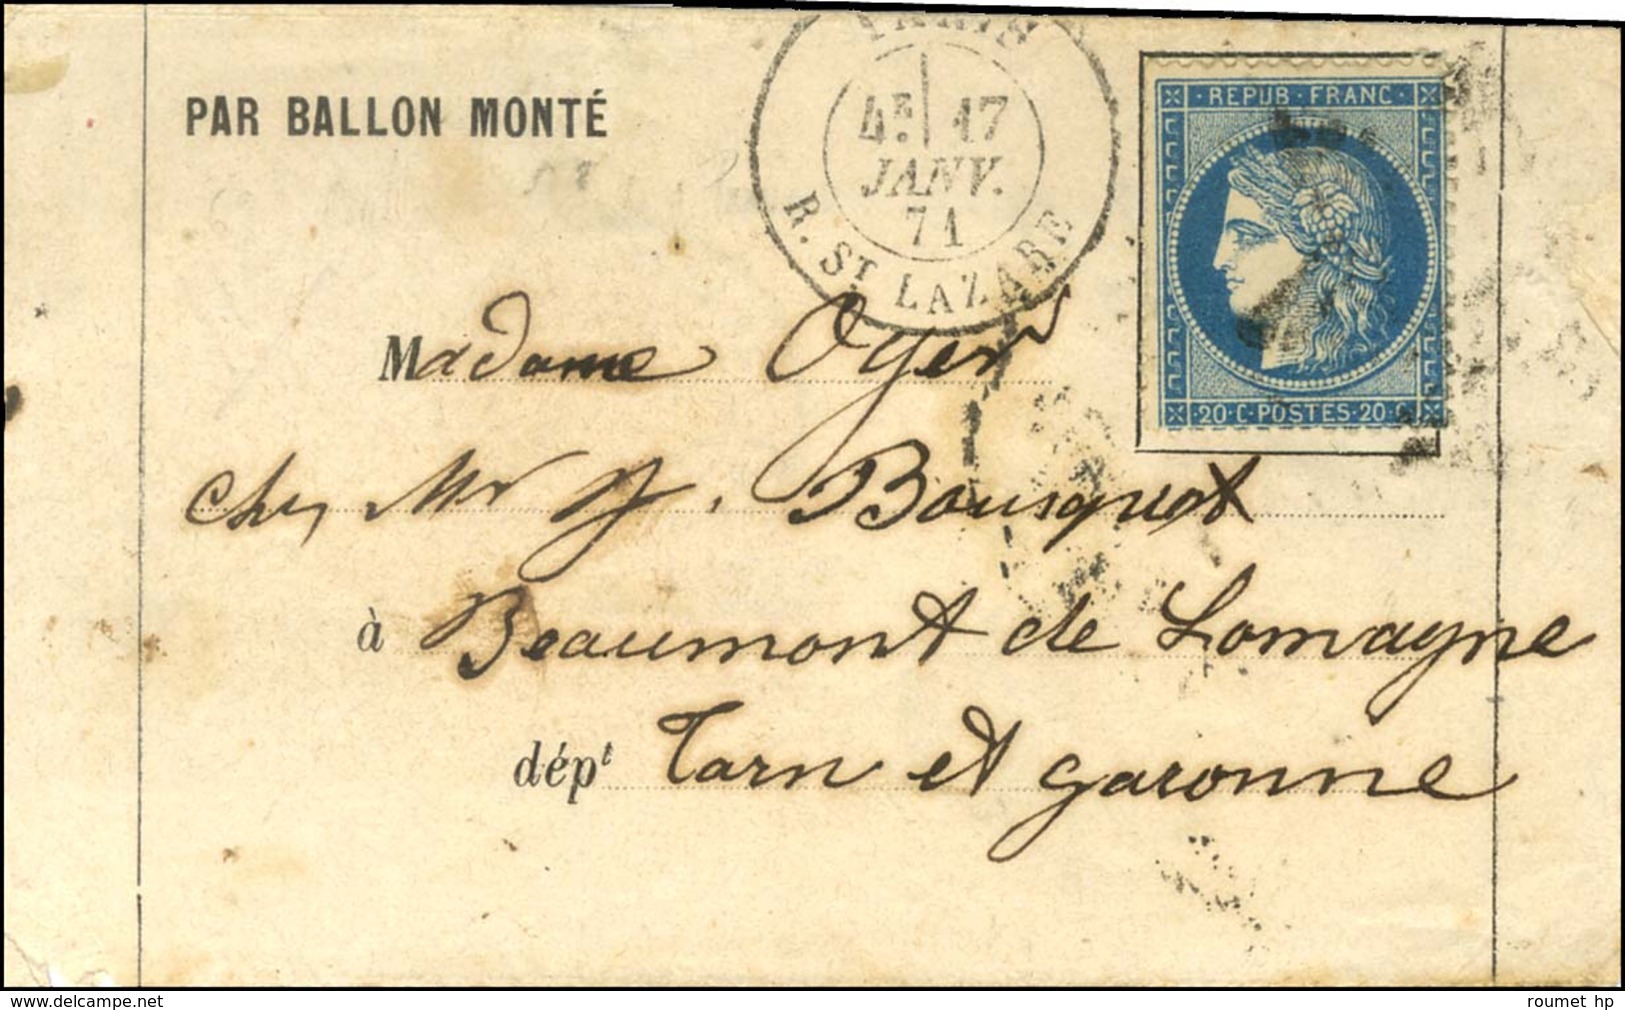 PARIS
4E 17
JANV.
71
R. ST LAZARE
REPUB · FRANC ·
20 · C · POSTES · 20 · C
PAR BALLON MONTÉ
Madame Oger
chez Mr J. Bousquet
à Beaumont de Lomagne
dépt Tarn et garonne
roumet hp